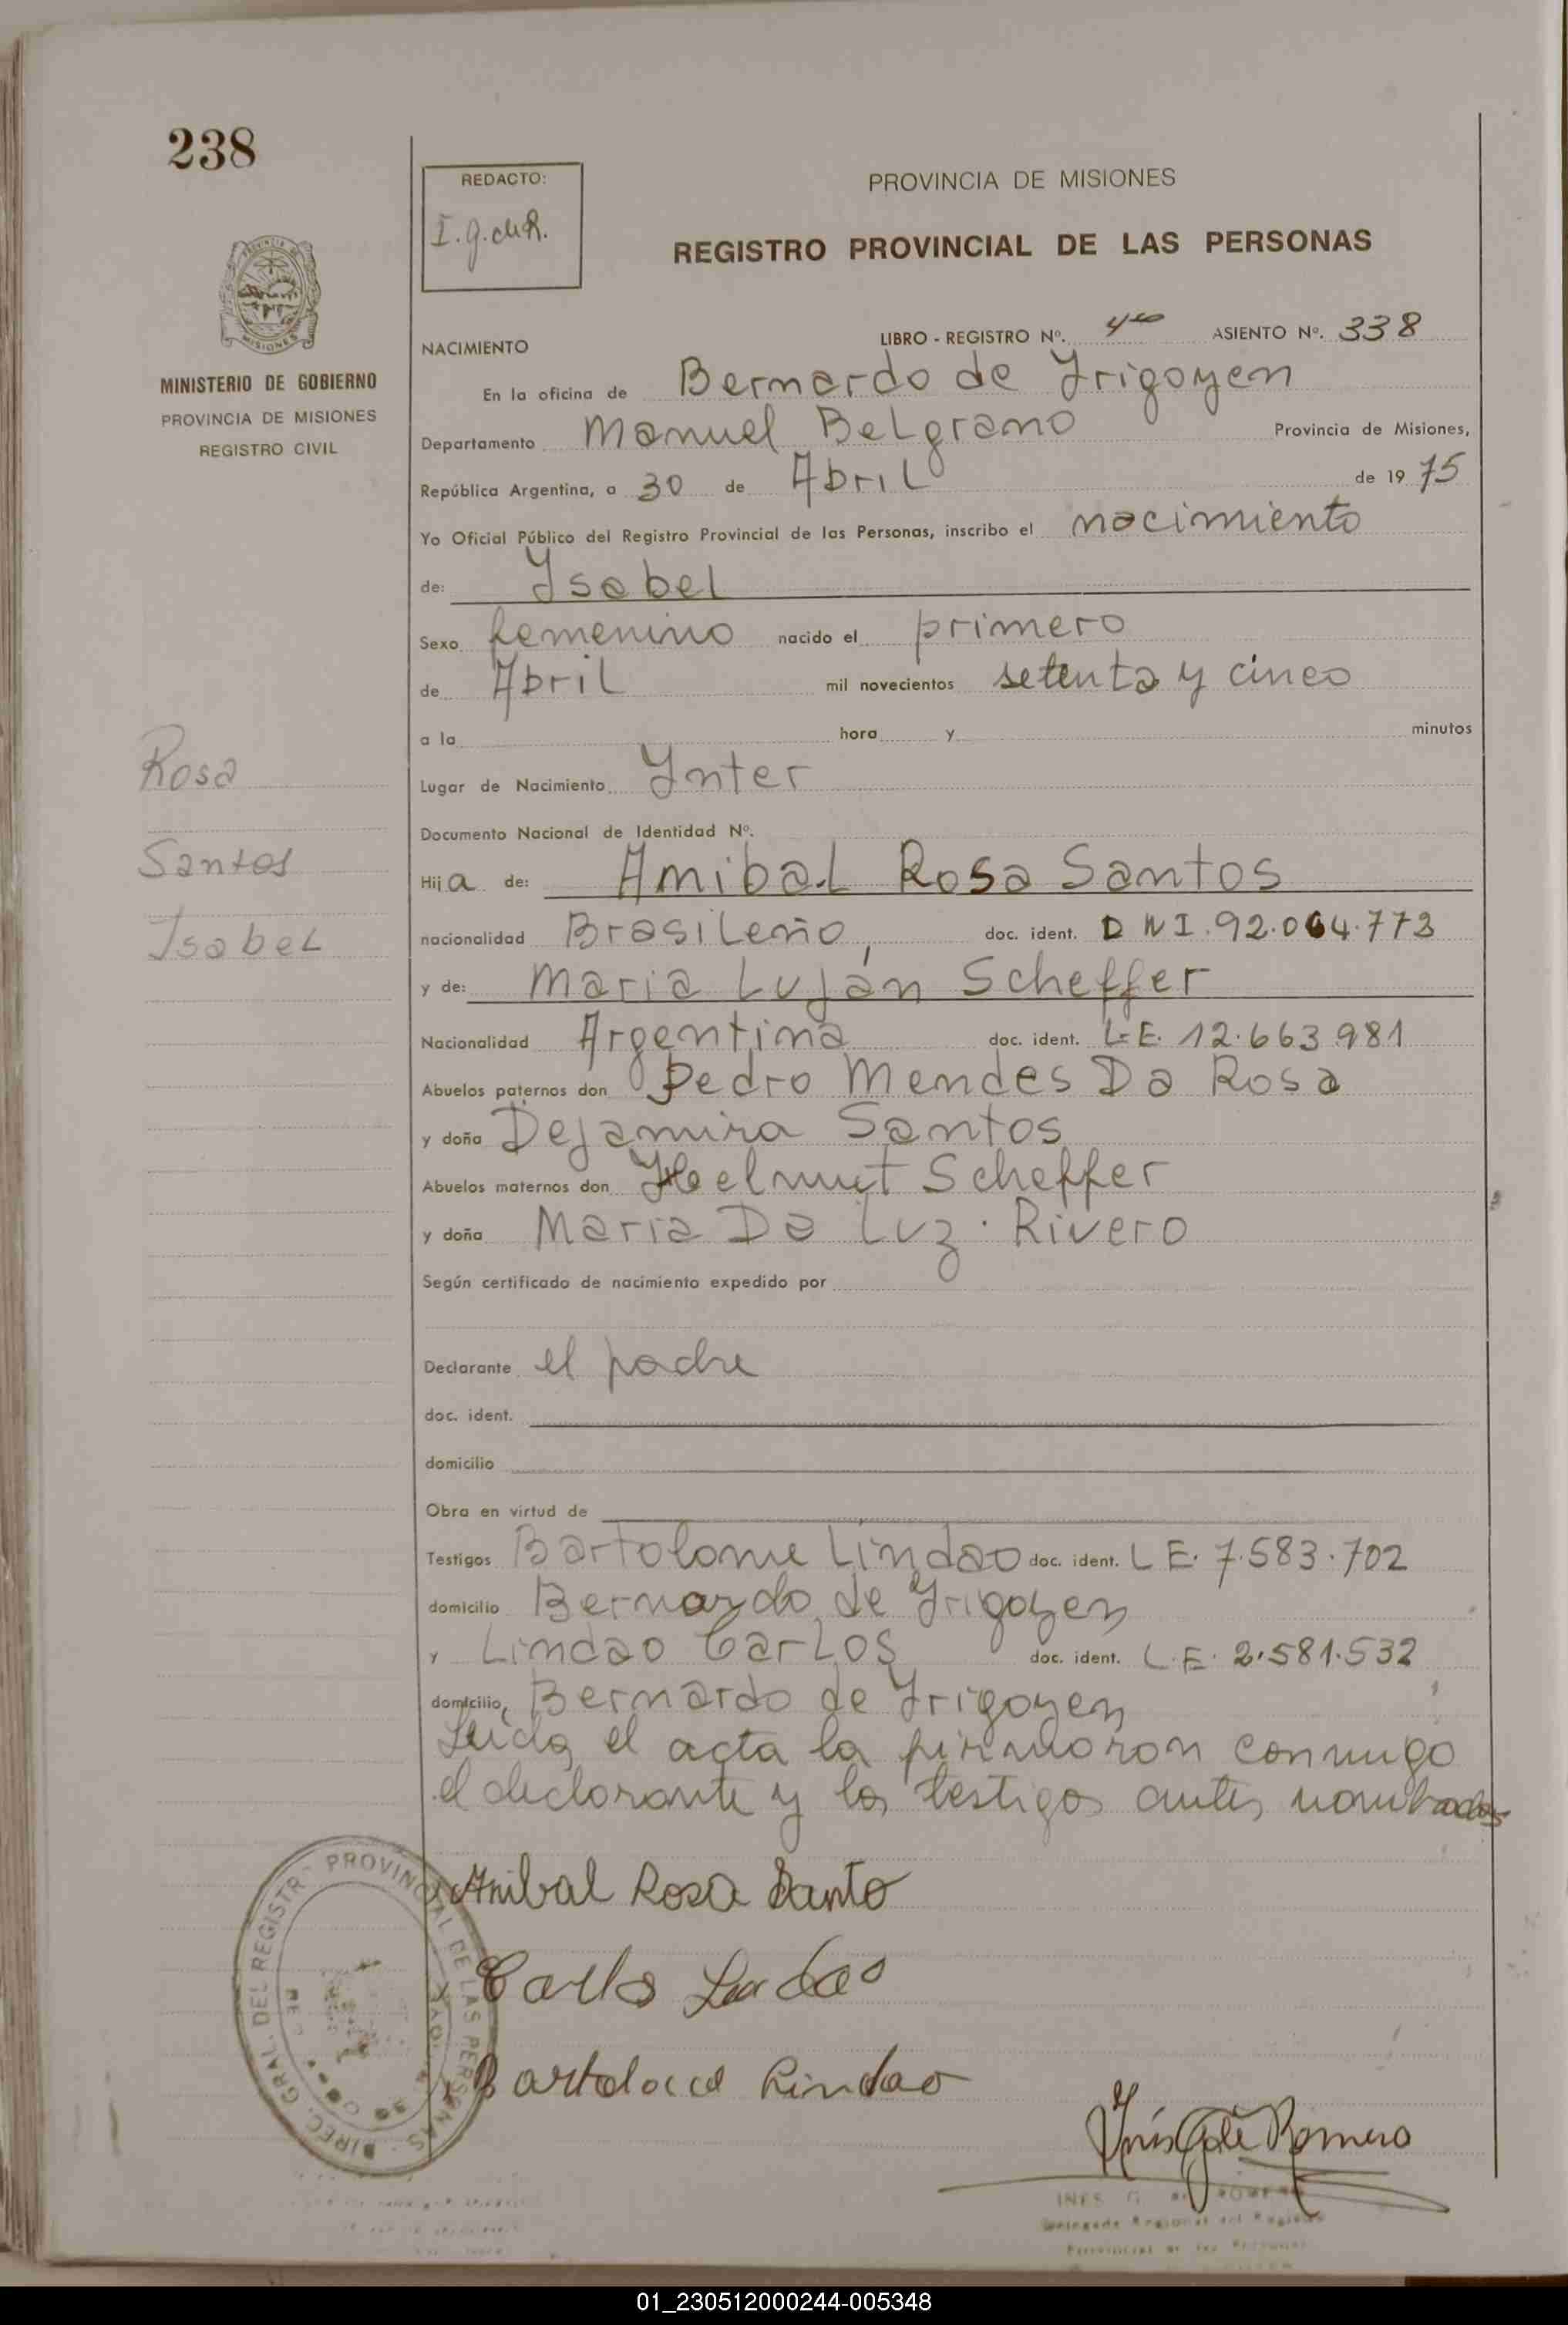 238
REDACTO:
I.g.deR.
PROVINCIA DE MISIONES
REGISTRO PROVINCIAL DE LAS PERSONAS
MISIONES
MINISTERIO DE GOBIERNO
PROVINCIA DE MISIONES
REGISTRO CIVIL
NACIMIENTO
LIBRO - REGISTRO Nº. 4to ASIENTO Nº. 338
En la oficina de Bernardo de Yrigoyen
Departamento Manuel Belgrano Provincia de Misiones,
República Argentina, a 30 de Abril de 19 75
Yo Oficial Público del Registro Provincial de las Personas, inscribo el nacimiento
de: Ysabel
Sexo femenino nacido el primero
de Abril mil novecientos setenta y cinco
a la hora y minutos
Rosa
Santos
Isabel
Lugar de Nacimiento Ynter
Documento Nacional de Identidad Nº.
Hija de: Anibal Rosa Santos
nacionalidad Brasileño, doc. ident. DNI. 92.064.773
y de: Maria Luján Scheffer
Nacionalidad Argentina doc. ident. L.E. 12.663.981
Abuelos paternos don Pedro Mendes Da Rosa
y doña Dejamira Santos
Abuelos maternos don Helmut Scheffer
y doña Maria Da Luz. Rivero
Según certificado de nacimiento expedido por
Declarante el padre
doc. ident.
domicilio
Obra en virtud de
Testigos Bartolome Lindao doc. ident. L E. 7.583.702
domicilio Bernardo de Yrigoyen
y Lindao Carlos doc. ident. L.E. 2.581.532
domicilio, Bernardo de Yrigoyen
Leida el acta la firmaron conmigo
el declarante y los testigos antes nombrados
Anibal Rosa Santo
Carlos Lindao
Bartolome Lindao
DIREC. GRAL. DEL REGISTR PROVINCIAL DE LAS PERSONAS
Inés G de Romero
INES G. de ROMERO
Delegada Regional del Registro
Provincial de las Personas
01_230512000244-005348